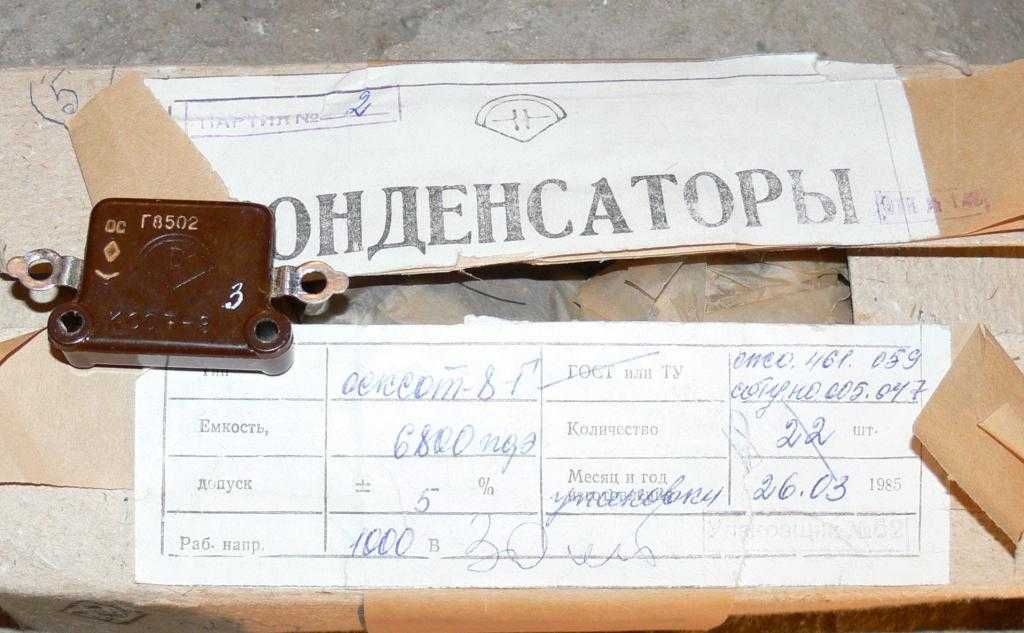 5
ПАРТИЯ № 2
ОНДЕНСАТОРЫ
ОС Г8502
3
КСОТ-8
Тип оскСОТ-8-Г
ГОСТ или ТУ ожо.461.059
сотуно.005.047
Емкость, 6800 пф
Количество 22 шт.
допуск ± 5 %
Месяц и год упаковки 26.03 1985
Раб. напр. 1000 В